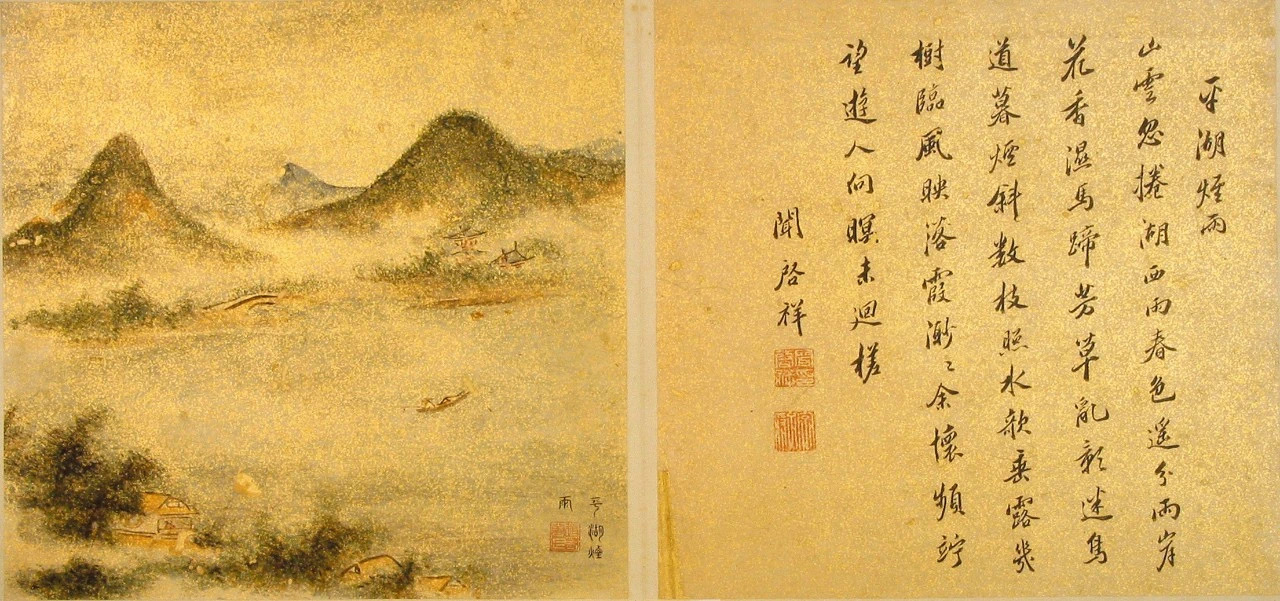 平湖煙雨
山雲忽捲湖西雨春色遥分兩岸
花香濕馬蹄芳草亂影迷鳥
道暮煙斜数枝照水欹垂露幾
樹臨風映落霞渺〻余懷頻竚
望遊人向暝未迴槎
聞啓祥
平湖煙
雨